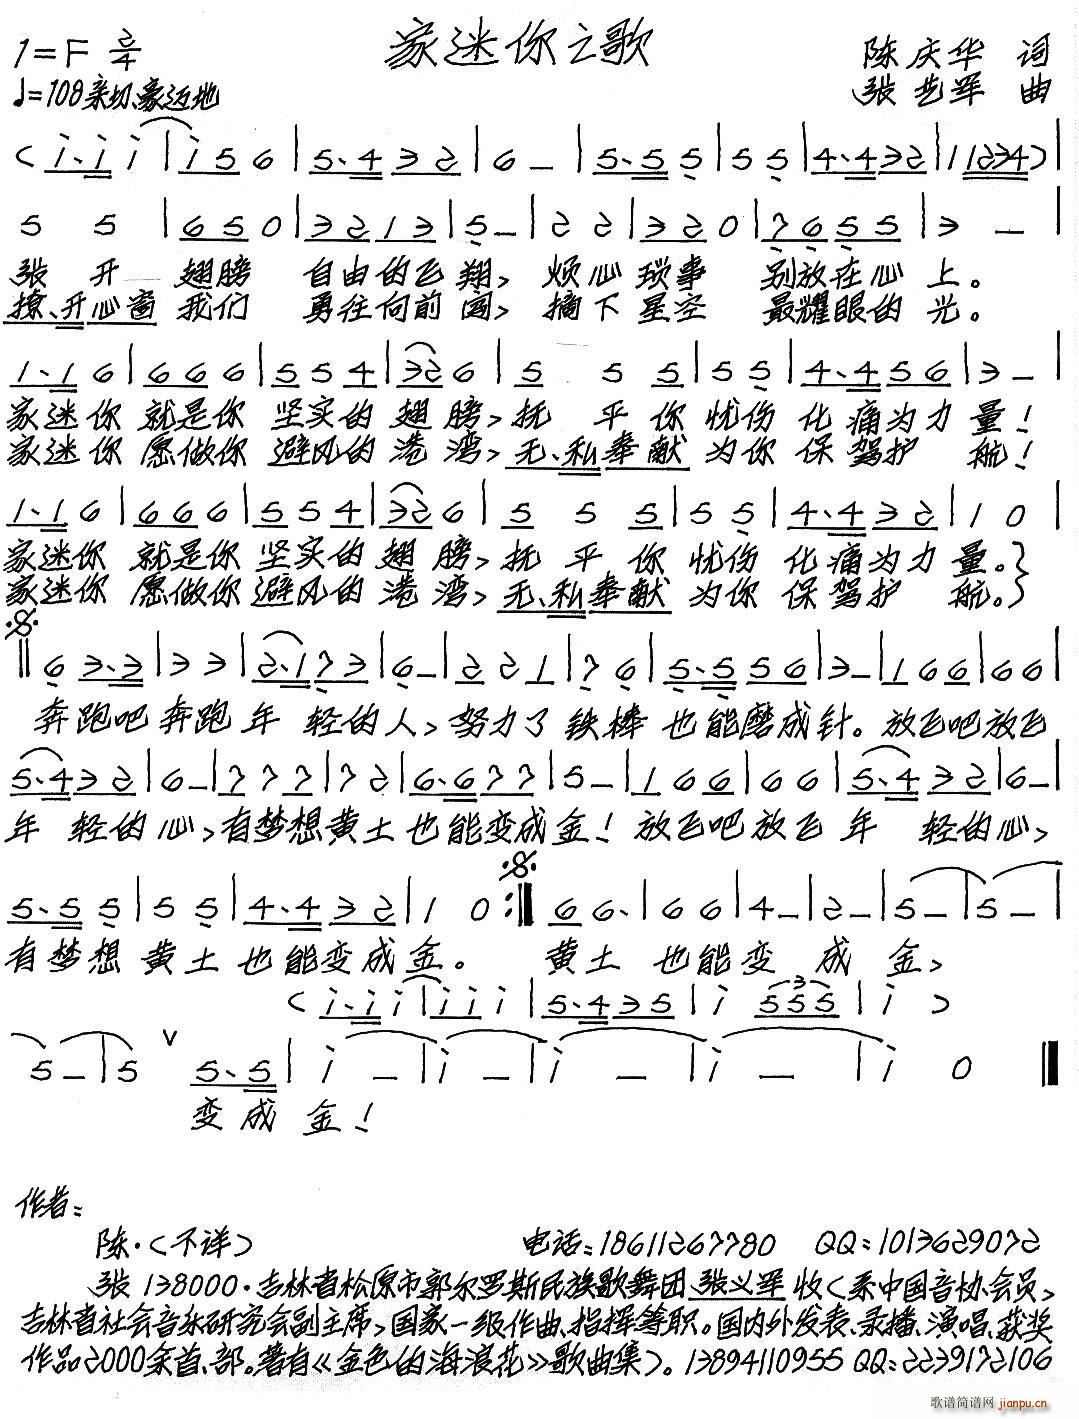 家迷你之歌
1=F 2/4
陈庆华 词
♩=108 亲切、豪迈地
张艺军 曲
( i·i i | i 5 6 | 5·4 3 2 | 6 – | 5·5 5 | 5 5 | 4·4 3 2 | 1 1234 ) |
5 5 | 6 5 0 | 3 2 1 3 | 5 – | 2 2 | 3 2 0 | 7 6 5 5 | 3 – |
张 开 翅膀 自由的飞翔, 烦心琐事 别放在心上。
撩、开心窗 我们 勇往向前闯, 摘下星空 最耀眼的光。
1·1 6 | 6 6 6 | 5 5 4 | 32 6 | 5 5 5 | 5 5 | 4·4 5 6 | 3 – |
家迷你 就是你 坚实的翅膀, 抚平你忧伤 化痛为力量!
家迷你 愿做你 避风的港湾, 无、私奉献 为你保驾护航!
1·1 6 | 6 6 6 | 5 5 4 | 32 6 | 5 5 5 | 5 5 | 4·4 3 2 | 1 0 |
家迷你 就是你 坚实的翅膀, 抚平你忧伤 化痛为力量。}
家迷你 愿做你 避风的港湾, 无、私奉献 为你保驾护航。}
𝄋
‖ 6 3·3 | 3 3 | 2·1 7 3 | 6 – | 2 2 1 | 7 6 | 5·5 5 6 | 3 – | 1 6 6 | 6 6 |
奔跑吧奔跑年轻的人, 努力了铁棒也能磨成针。放飞吧放飞
5·4 3 2 | 6 – | 7 7 7 | 7 2 | 6·6 7 7 | 5 – | 1 6 6 | 6 6 | 5·4 3 2 | 6 – |
年轻的心, 有梦想黄土也能变成金! 放飞吧放飞年轻的心,
𝄋
5·5 5 | 5 5 | 4·4 3 2 | 1 0 :‖ 6 6· | 6 6 | 4 – | 2 – | 5 – | 5 – |
有梦想黄土也能变成金。 黄土也能变成金,
( i·i i | i i i | 5·4 3 5 | i 5 5 5 | i )
3
5 – | 5 ∨ 5·5 | i – | i – | i – | i – | i 0 ‖
变成金!
作者:
陈·(不详) 电话:18611267780 QQ:1013629072
张 138000·吉林省松原市郭尔罗斯民族歌舞团 张义军 收(系中国音协会员,
吉林省社会音乐研究会副主席,国家一级作曲、指挥等职。国内外发表、录播、演唱、获奖
作品2000余首、部。著有《金色的海浪花》歌曲集)。13894110955 QQ:2239172106
歌谱简谱网 jianpu.cn